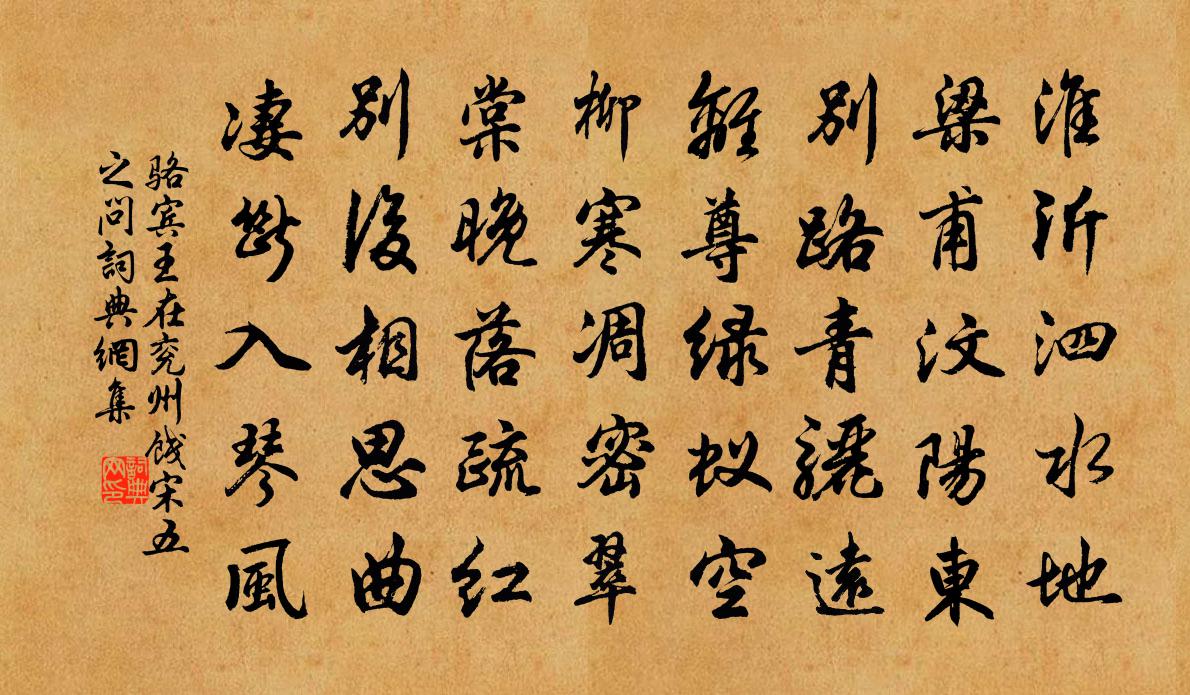 淮沂泗水地
梁甫汶陽東
別路青驪遠
離尊緑蚁空
柳寒凋密翠
棠晚落疏红
別後相思曲
凄斷入琴風
骆宾王在兖州餞宋五
之问詞典網集
詞典网印